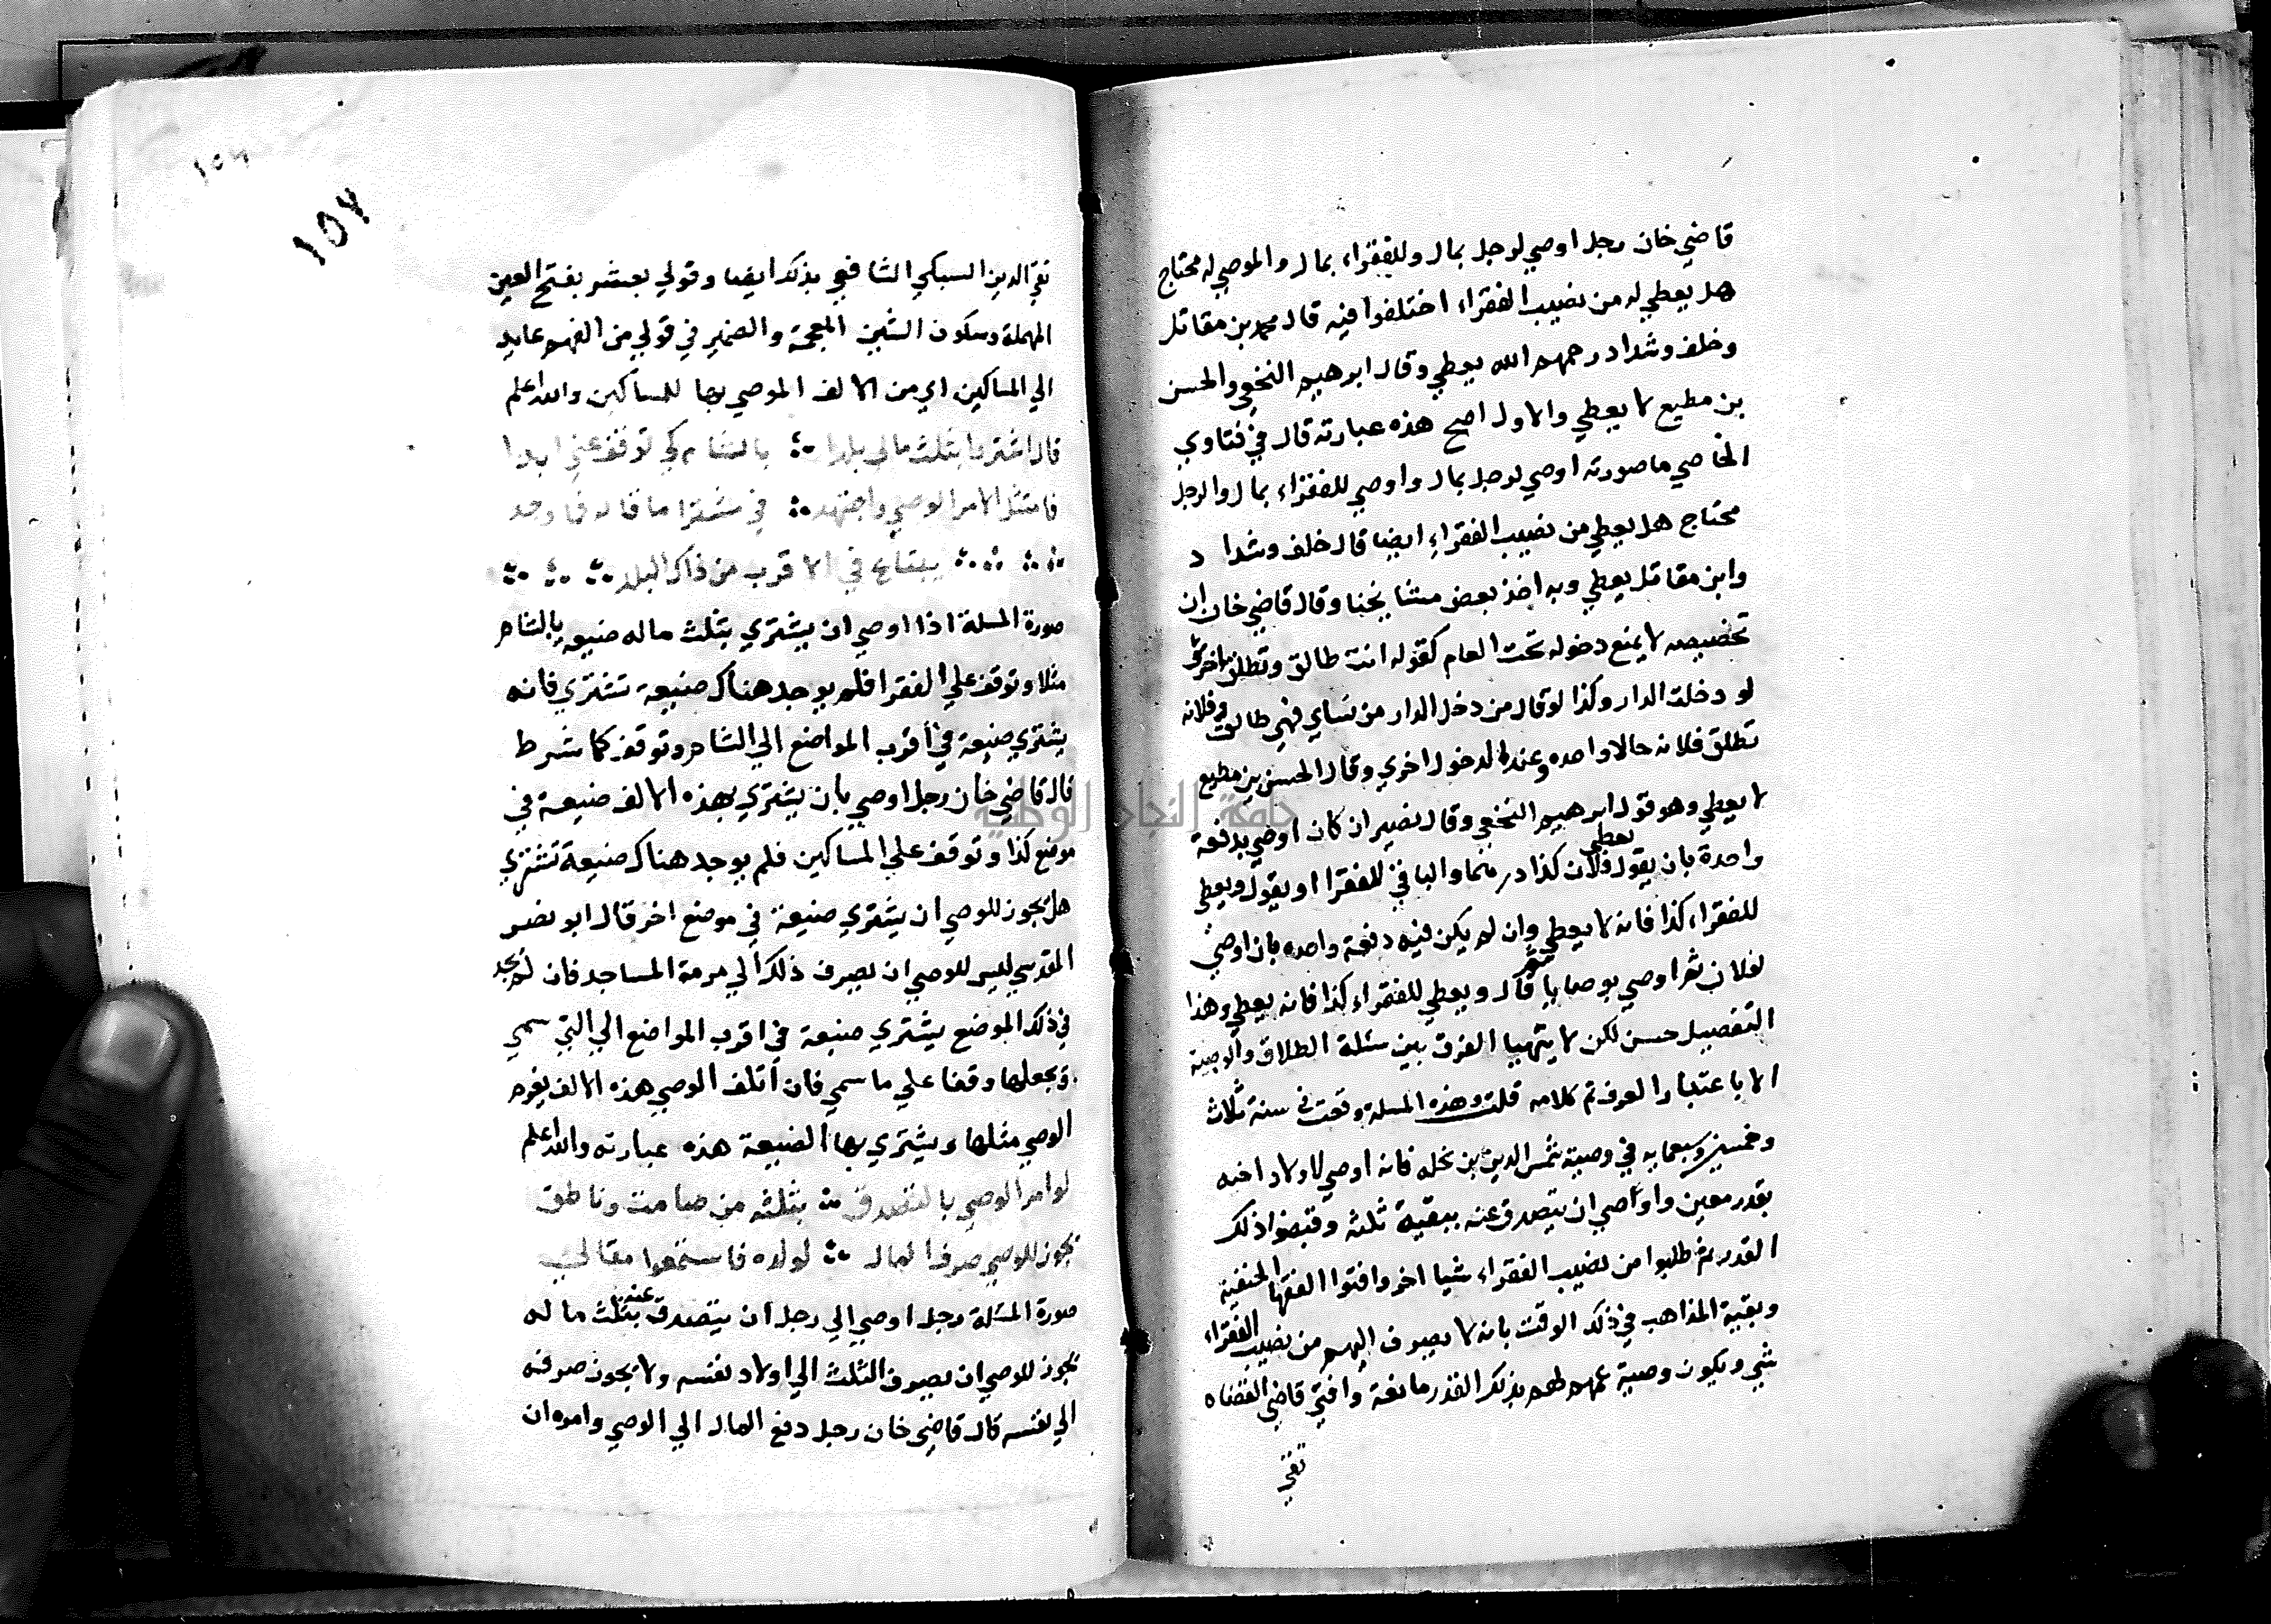 قاضي خان رجل اوصي لرجل بمال وللفقراء بمال والموصي له محتاج
هل يعطي له من نصيب الفقراء اختلفوا فيه قال محمد بن مقاتل
وخلف وشداد رحمهم الله يعطي وقال ابرهيم النخعي والحسن
بن مطيع لا يعطي والاول اصح هذه عبارته قال في فتاوي
الخاصي ما صورته اوصي لرجل بمال واوصي للفقراء بمال والرجل
محتاج هل يعطي من نصيب الفقراء ايضا قال خلف وشداد
وابن مقاتل يعطي وبه اخذ بعض مشايخنا وقال قاضي خان ان
تخصيصه لا يمنع دخوله تحت العام كقوله انت طالق وتطلق اخري
لو دخلت الدار وكذا لو قال من دخل الدار من نساي فهي طالق وفلانه
تطلق فلانه حالا واحده وعند الدخول اخري وقال الحسن بن مطيع
لا يعطي وهو قول ابرهيم النخعي وقال نصير ان كان اوصي بدفعة
واحدة بان يقول يعطي فلان كذا درهما والباقي للفقرا او يقول ويعطي
للفقراء كذا فانه لا يعطي وان لم يكن فيه دفعة واحده بان اوصي
لفلان ثم اوصي بوصايا ثم قال ويعطي للفقراء كذا فانه يعطي وهذا
التفصيل حسن لكن لا يتهيا الفرق بين مسئلة الطلاق والوصية
الا باعتبار العرف تم كلامه قلت وهذه المسلة وقعت في سنة ثلاث
وخمسين وسبعمايه في وصية شمس الدين بن نحله فانه اوصي لاولاد اخيه
بقدر معين واوصي ان يتصدق عنه ببقية ثلثه وقبضوا ذلك
القدر ثم طلبوا من نصيب الفقراء شيا اخر وافتوا الفقها الحنفية
وبقية المذاهب في ذلك الوقت بانه لا يصرف اليهم من نصيب الفقراء
شي ويكون وصية عمهم لهم بذلك القدر مانعة وافتي قاضي القضاه
تقي
١٥٢
تقي الدين السبكي الشافعي بذلك ايضا وقولي بعشر بفتح العين
المهملة وسكون الشين المعجمة والضمير في قولي من الفهم عايد
الي المساكين اي من الالف الموصي بها للمساكين والله اعلم
قال اشتروا بثلث مالي بلدا بالشام كي توقف عني ابدا
فامتثل الامر الوصي واجتهد في مشترا ما قاله فما وجد
يبتاع في الاقرب من ذاك البلد
صورة المسلة اذا اوصي ان يشتري بثلث ماله ضيعه بالشام
مثلا وتوقف علي الفقرا فلم يوجد هناك ضيعة تشتري فانه
يشتري ضيعة في اقرب المواضع الي الشام وتوقف كما شرط
قال قاضي خان رجل اوصي بان يشتري بهذه الالف ضيعة في
موضع كذا وتوقف علي المساكين فلم يوجد هناك ضيعة تشتري
هل يجوز للوصي ان يشتري ضيعة في موضع اخر قال ابو نصر
المقدسي ليس للوصي ان يصرف ذلك الي مرمة المساجد فان لم يجد
في ذلك الموضع يشتري ضيعة في اقرب المواضع الي التي سمي
ويجعلها وقفا علي ما سمي فان اتلف الوصي هذه الالف يغرم
الوصي مثلها ويشتري بها الضيعة هذه عبارته والله اعلم
لو امر الوصي بالتصدق بثلثه من صامت وناطق
يجوز للوصي صرف المال لولده فاستمعوا مقالي
صورة المسئلة رجل اوصي الي رجل ان يتصدق عنه بثلث ماله
يجوز للوصي ان يصرف الثلث الي اولاد نفسه ولا يجوز صرفه
الي نفسه قال قاضي خان رجل دفع المال الي الوصي وامره ان
جامعة النجاح الوطنية